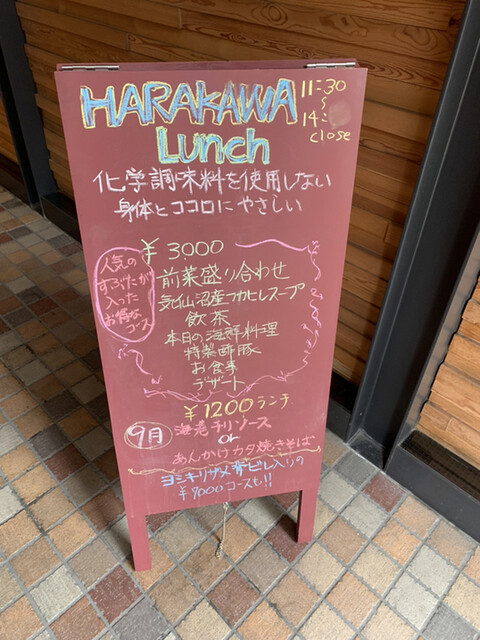 HARAKAWA
Lunch
11:30
〜
14:
close
化学調味料を使用しない
身体とココロにやさしい
¥3000
人気の
すぶたが
入った
お得な
コース
前菜盛り合わせ
気仙沼産フカヒレスープ
飲茶
本日の海鮮料理
特製酢豚
お食事
デザート
¥1200ランチ
9月
海老チリソース
or
あんかけカタ焼きそば
ヨシキリザメ 入りの
¥9000コースも!!